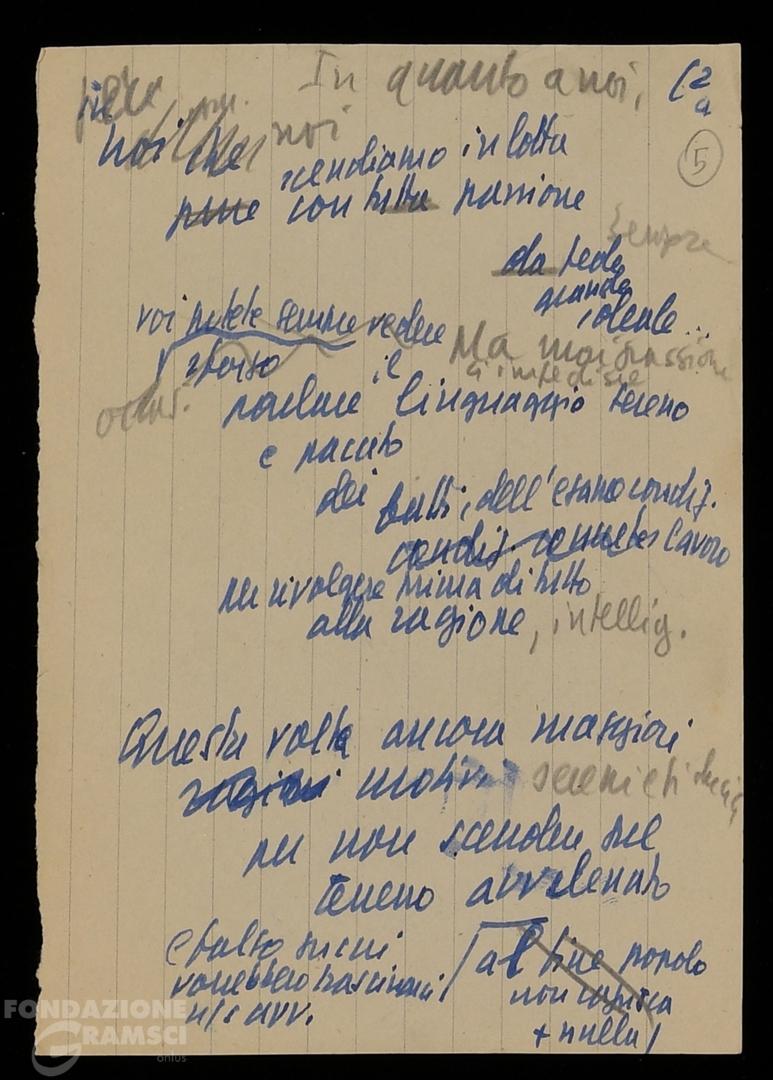 In quanto a noi, (2
a
5
noi
noi che scendiamo in lotta
pure con tutta passione
sempre
da fede
grande
ideale...
voi potete sempre vedere
Ma mai passione
sforzo
c'impedisce
il
parlare linguaggio sereno
e pacato
dei fatti, dell'esame condiz.
condiz. lavoro
per rivolgere prima di tutto
alla ragione, intellig.
Questa volta ancora maggiori
ragioni motivi serenità
per non scendere sul
terreno avvelenato
e falso su cui al fine popolo
vorrebbero trascinarci non capisca
n/s avv. + nulla
FONDAZIONE
GRAMSCI
onlus